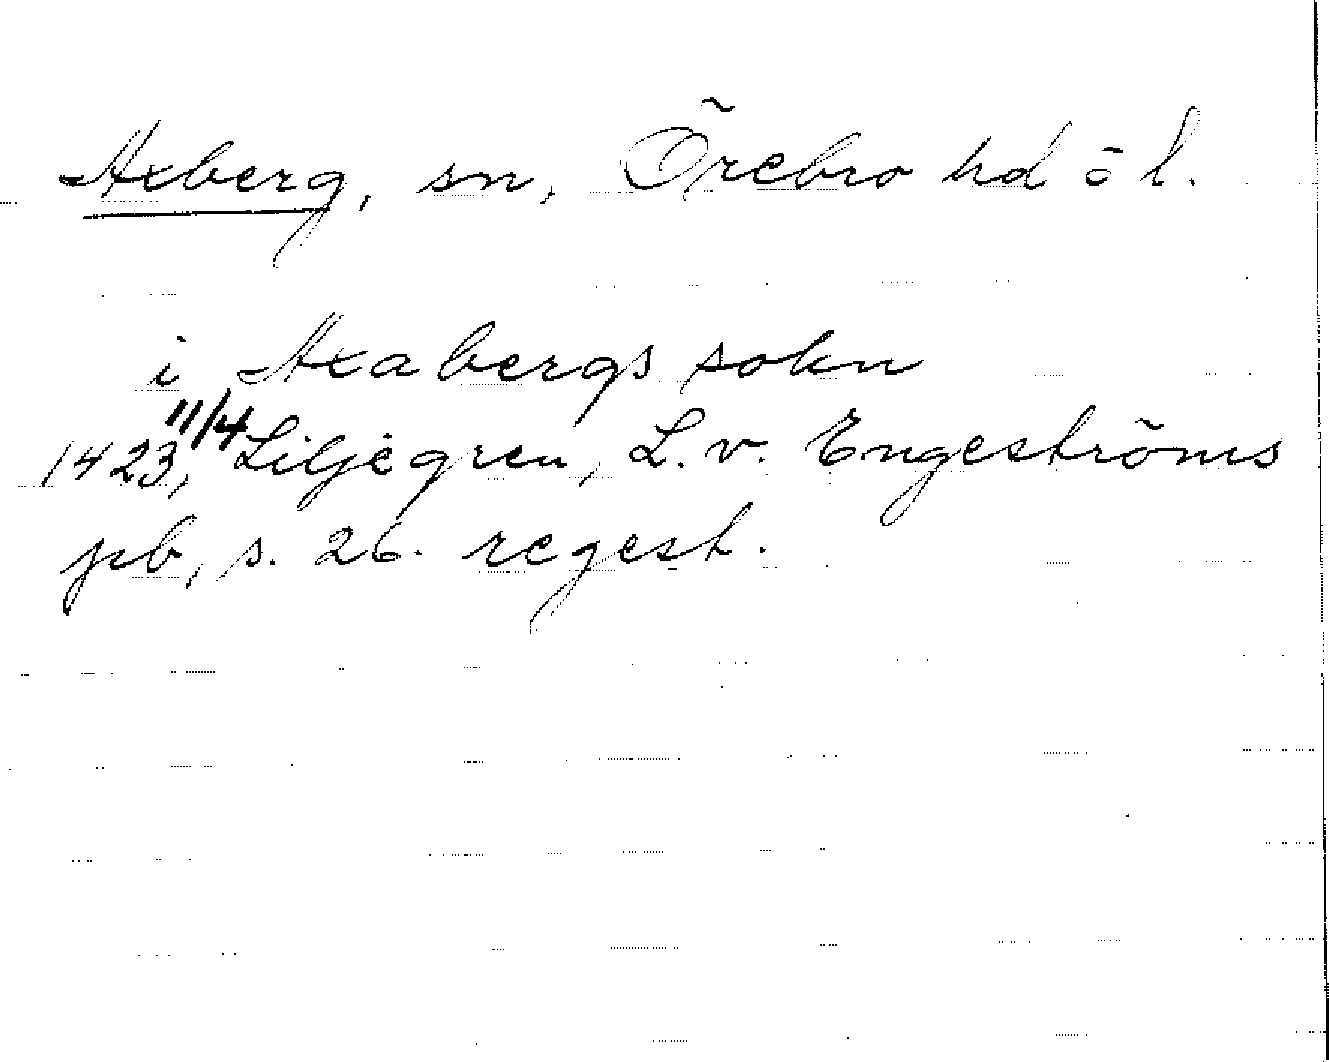 Axberg, sn, Örebro hd ö l.
i Axabergs sokn
1423, 11/4 Liljegren, L. v. Engeströms
pb, s. 26. regest.